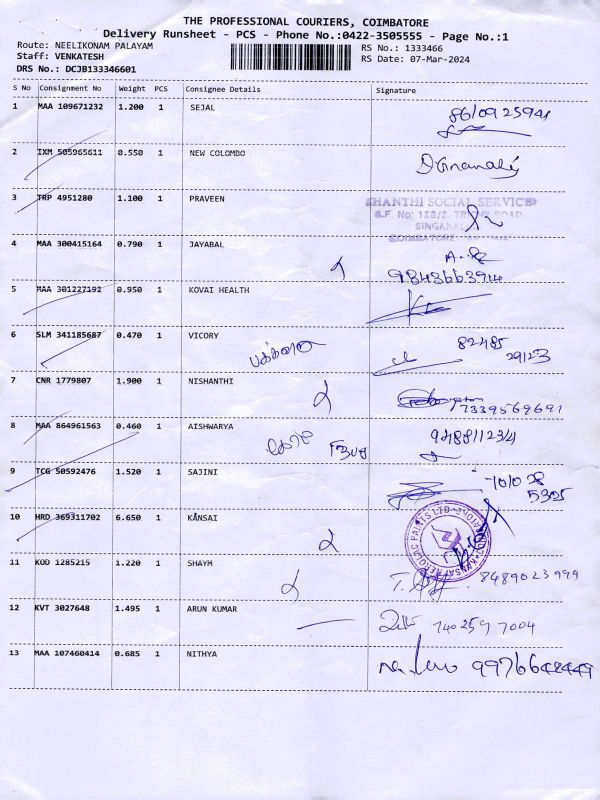 THE PROFESSIONAL COURIERS, COIMBATORE
Delivery Runsheet - PCS - Phone No.:0422-3505555 - Page No.:1
Route: NEELIKONAM PALAYAM
RS No.: 1333466
Staff: VENKATESH
RS Date: 07-Mar-2024
DRS No.: DCJB133346601
S No Consignment No Weight PCS Consignee Details Signature
1 MAA 109671232 1.200 1 SEJAL
2 IXM 505965611 0.550 1 NEW COLOMBO
3 TRP 4951280 1.100 1 PRAVEEN
SHANTHI SOCIAL SERVICES
COIMBATORE
4 MAA 300415164 0.790 1 JAYABAL
9843663944
5 MAA 301227192 0.950 1 KOVAI HEALTH
6 SLM 341185687 0.470 1 VICORY
82485
29123
7 CNR 1779807 1.900 1 NISHANTHI
7339569691
8 MAA 864961563 0.460 1 AISHWARYA
9 TCG 50592476 1.520 1 SAJINI
10 HRD 369311702 6.650 1 KANSAI
11 KOD 1285215 1.220 1 SHAYM
8489023999
12 KVT 3027648 1.495 1 ARUN KUMAR
7402597004
13 MAA 107460414 0.685 1 NITHYA